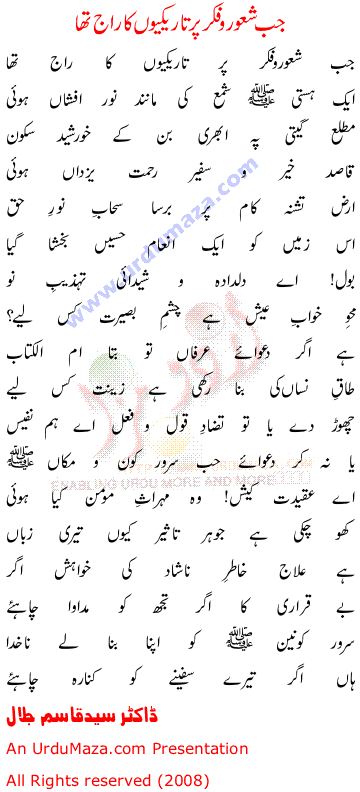 جب شعور و فکر پر تاریکیوں کا راج تھا
جب شعور و فکر پر تاریکیوں کا راج تھا
ایک ہستی ﷺ شمع کی مانند نور افشاں ہوئی
مطلع گیتی پہ ابھری بن کے خورشید سکون
قاصد خیر و سفیر رحمت یزداں ہوئی
ارض تشنہ کام پر برسا سحابِ نورِ حق
اس زمیں کو ایک انعام حسیں بخشا گیا
بول! اے دلدادہ و شیدائی تہذیبِ نو
محوِ خوابِ عیش ہے چشمِ بصیرت کس لیے؟
ہے اگر دعوائے عرفاں تو بتا ام الکتاب
طاقِ نسیاں کی بنا رکھی ہے زینت کس لیے
چھوڑ دے یا تو تضادِ قول و فعل اے ہم نفیس
یا نہ کر دعوائے حب سرور کون و مکاں ﷺ
اے عقیدت کیش! وہ مہراثِ مؤمن کیا ہوئی
کھو چکی ہے جوہر تاثیر کیوں تیری زباں
ہے علاج خاطر ناشاد کی خواہش اگر
بے قراری کا اگر تجھ کو مداوا چاہئے
سرور کونین ﷺ کو اپنا بنا لے ناخدا
ہاں اگر تیرے سفینے کو کنارہ چاہئے
ڈاکٹر سید قاسم جلال
An UrduMaza.com Presentation
All Rights reserved (2008)
www.urdumaza.com
اردو مزہ
ENABLING URDU MORE AND MORE